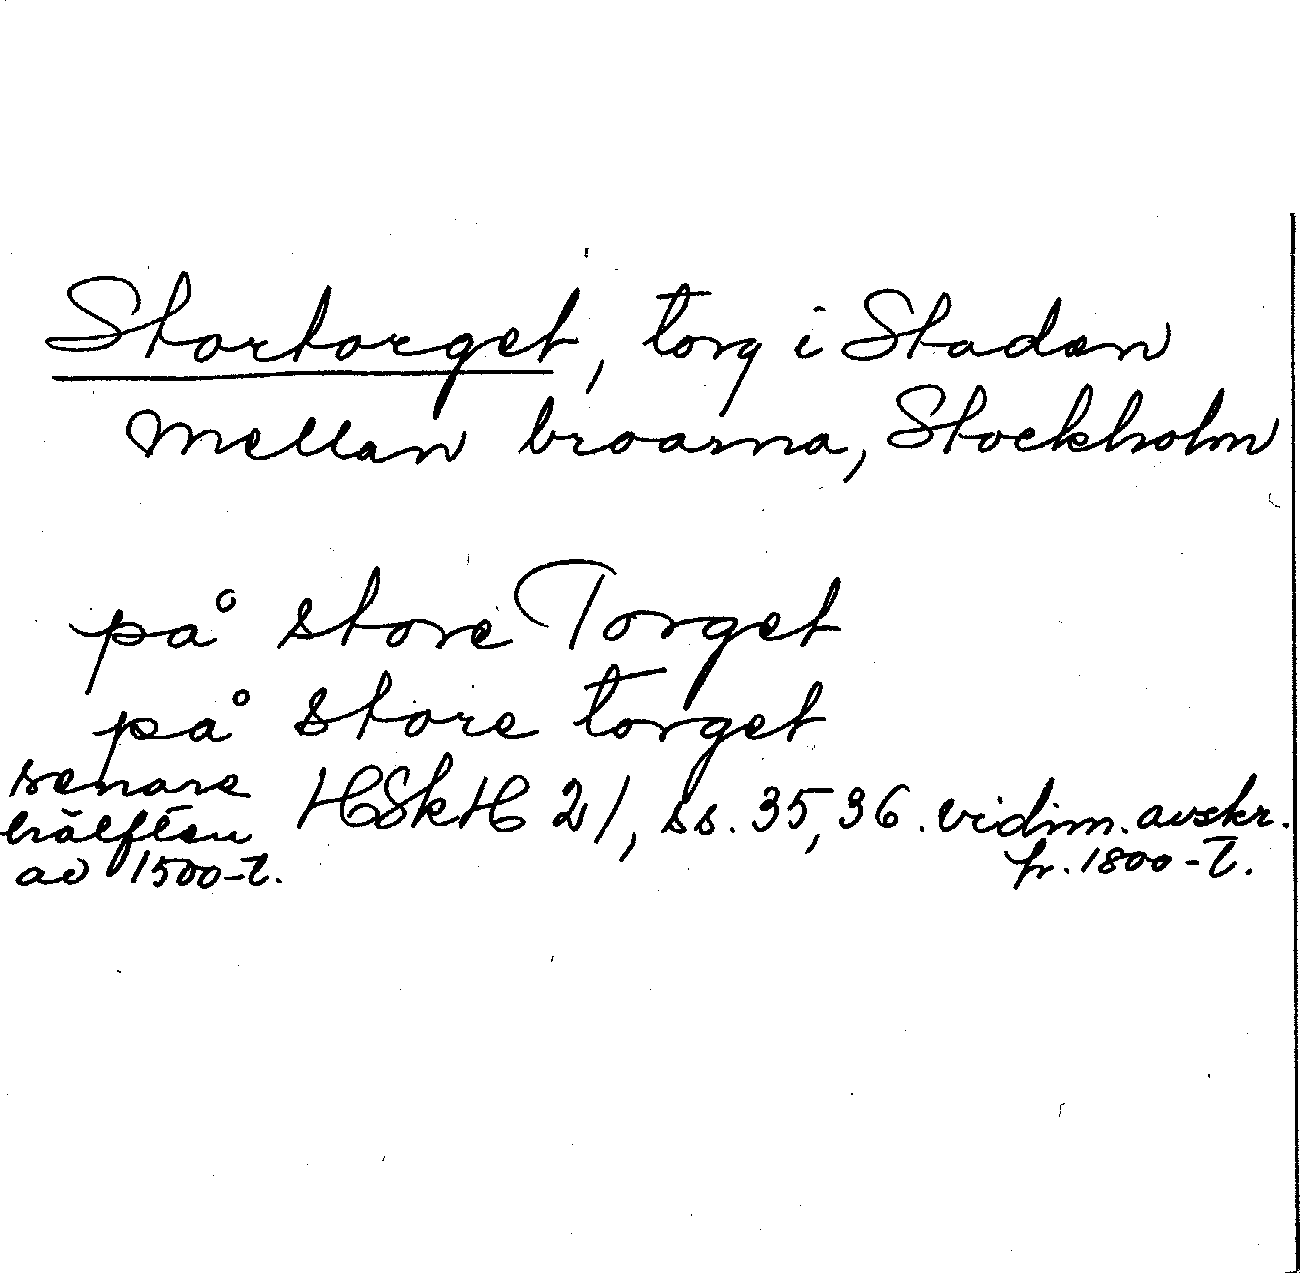 Stortorget, torg i Staden
mellan broarna, Stockholm
på store Torget
på store torget
senare hälften av 1500-t.
HSkH 21, ss. 35, 36. vidim. avskr. fr. 1800-t.